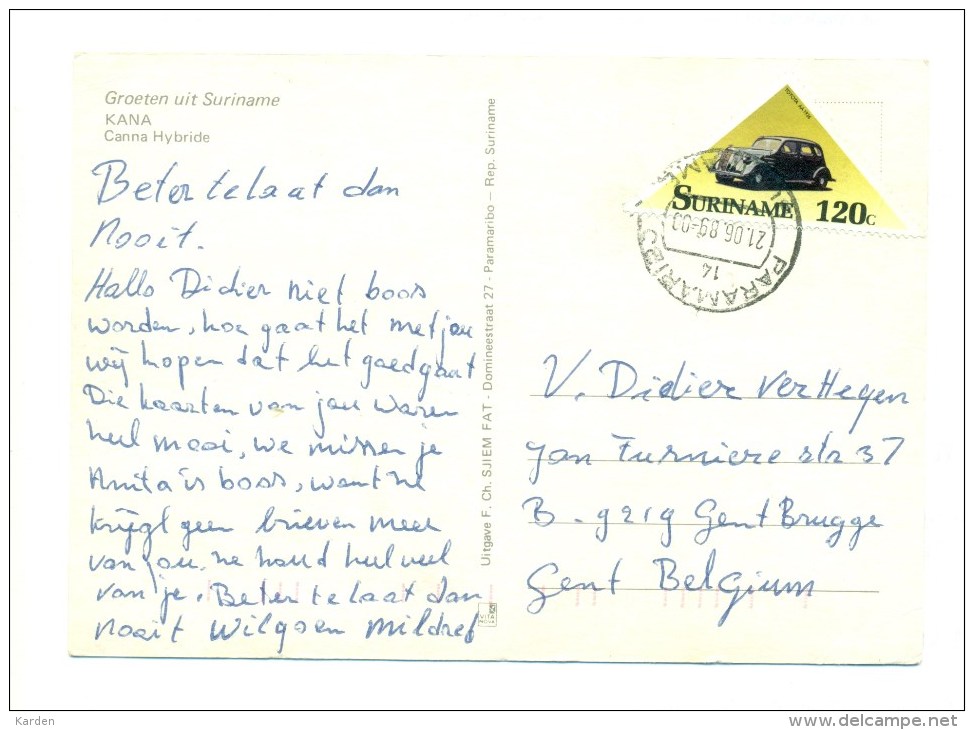 Groeten uit Suriname
KANA
Canna Hybride
Beter te laat dan
Nooit.
Hallo Didier niet boos
worden, hoe gaat het met jou
wij hopen dat het goed gaat
Die kaarten van jou waren
heel mooi, we missen je
Anita is boos, want ze
krijgt geen brieven meer
van jou, ze houd heel veel
van je. Beter te laat dan
nooit Wilgoen Mildred
Uitgave F. Ch. SJIEM FAT - Domineestraat 27 - Paramaribo — Rep. Suriname
SURINAME 120c
PARAMARIBO
21.06.89
14
V. Didier VerHegen
Jan Furniere str 37
B - 9219 GentBrugge
Gent Belgium
Karden
www.delcampe.net